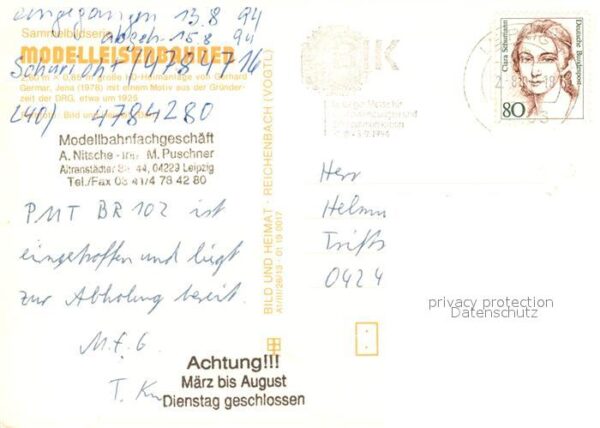 eingegangen 13.8 94
abgeh. 15.8 94
Sammelbildserie
MODELLEISENBAHNEN
4784716
2,80 m × 0,85 große H0-Heimanlage von Gerhard
Germar, Jena (1978) mit einem Motiv aus der Gründer-
zeit der DRG, etwa um 1925
4784280
Modellbahnfachgeschäft
A. Nitsche - M. Puschner
Altranstädter Str. 44, 04229 Leipzig
Tel./Fax 03 41/4 78 42 80
PMT BR 102 ist
eingetroffen und liegt
zur Abholung bereit.
M.f.G.
T.
Achtung!!!
März bis August
Dienstag geschlossen
BILD UND HEIMAT · REICHENBACH (VOGTL)
A1/III/26/13 01 19 0017
Clara Schumann
Deutsche Bundespost
80
Herr
Helmu
Trifts
0424
privacy protection
Datenschutz